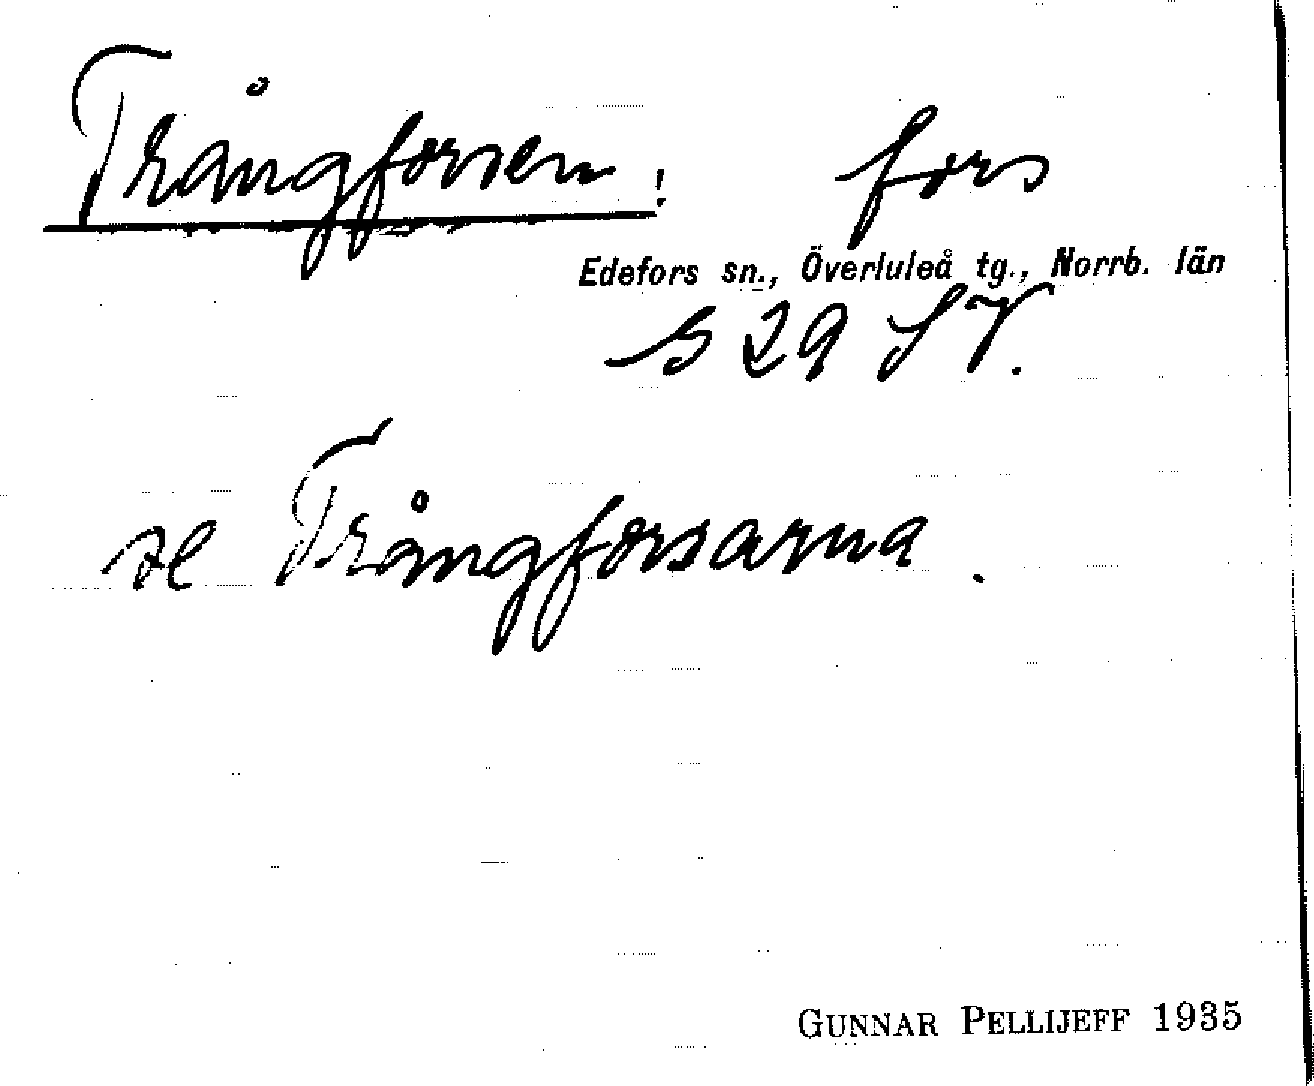 Trångforsen! fors
Edefors sn., Överluleå tg., Norrb. län
S 29 SV.
se Trångforsarna.
GUNNAR PELLIJEFF 1935